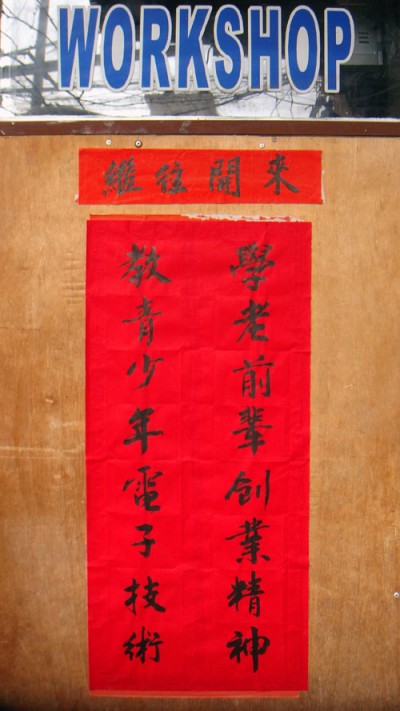 WORKSHOP
繼往開來
學老前輩創業精神
教青少年電子技術